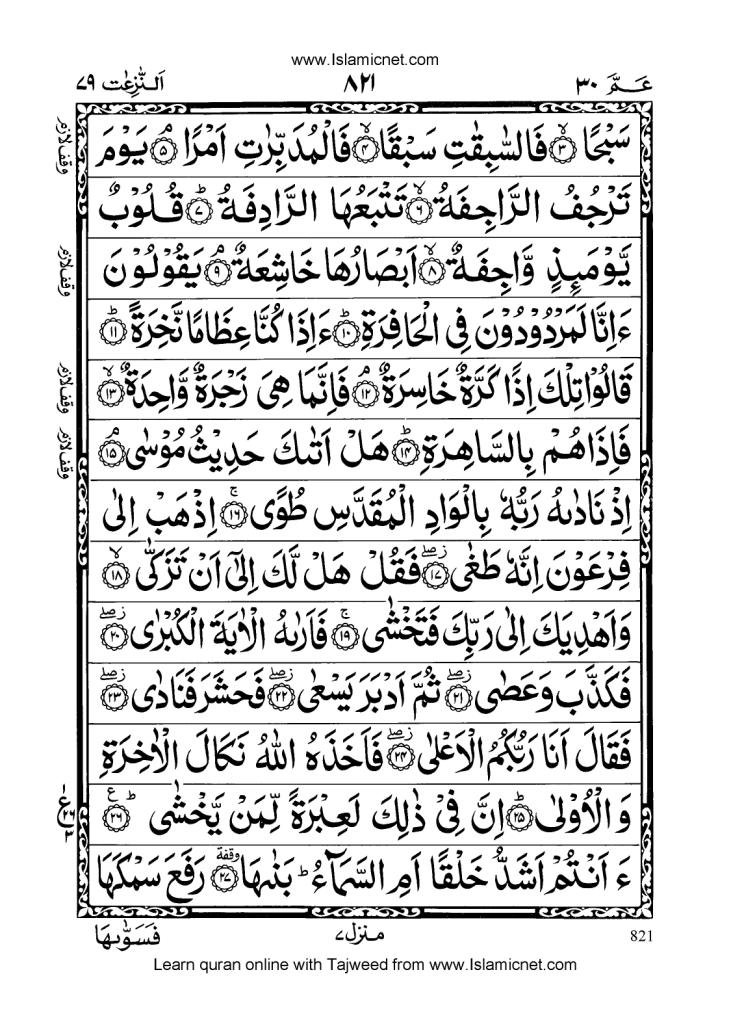 www.Islamicnet.com
عَمَّ ٣٠ ٨٢١ اَلنّٰزِعٰت ٧٩
سَبْحًا ۙ﴿٣﴾ فَالسّٰبِقٰتِ سَبْقًا ۙ﴿٤﴾ فَالْمُدَبِّرٰتِ اَمْرًا ۘ﴿٥﴾ يَوْمَ
تَرْجُفُ الرَّاجِفَةُ ۙ﴿٦﴾ تَتْبَعُهَا الرَّادِفَةُ ؕ﴿٧﴾ قُلُوْبٌ
يَّوْمَئِذٍ وَّاجِفَةٌ ۙ﴿٨﴾ اَبْصَارُهَا خَاشِعَةٌ ۘ﴿٩﴾ يَقُوْلُوْنَ
ءَاِنَّا لَمَرْدُوْدُوْنَ فِى الْحَافِرَةِ ؕ﴿١٠﴾ ءَاِذَا كُنَّا عِظَامًا نَّخِرَةً ؕ﴿١١﴾
قَالُوْا تِلْكَ اِذًا كَرَّةٌ خَاسِرَةٌ ۘ﴿١٢﴾ فَاِنَّمَا هِىَ زَجْرَةٌ وَّاحِدَةٌ ۙ﴿١٣﴾
فَاِذَا هُمْ بِالسَّاهِرَةِ ؕ﴿١٤﴾ هَلْ اَتٰىكَ حَدِيْثُ مُوْسٰى ۘ﴿١٥﴾
اِذْ نَادٰىهُ رَبُّهٗ بِالْوَادِ الْمُقَدَّسِ طُوًى ۚ﴿١٦﴾ اِذْهَبْ اِلٰى
فِرْعَوْنَ اِنَّهٗ طَغٰى ۖ﴿١٧﴾ فَقُلْ هَلْ لَّكَ اِلٰٓى اَنْ تَزَكّٰى ۙ﴿١٨﴾
وَاَهْدِيَكَ اِلٰى رَبِّكَ فَتَخْشٰى ۚ﴿١٩﴾ فَاَرٰىهُ الْاٰيَةَ الْكُبْرٰى ۖ﴿٢٠﴾
فَكَذَّبَ وَعَصٰى ۖ﴿٢١﴾ ثُمَّ اَدْبَرَ يَسْعٰى ۖ﴿٢٢﴾ فَحَشَرَ فَنَادٰى ۖ﴿٢٣﴾
فَقَالَ اَنَا رَبُّكُمُ الْاَعْلٰى ۖ﴿٢٤﴾ فَاَخَذَهُ اللّٰهُ نَكَالَ الْاٰخِرَةِ
وَالْاُوْلٰى ؕ﴿٢٥﴾ اِنَّ فِىْ ذٰلِكَ لَعِبْرَةً لِّمَنْ يَّخْشٰى ؕ﴿٢٦﴾ ع
ءَاَنْتُمْ اَشَدُّ خَلْقًا اَمِ السَّمَآءُ ؕ بَنٰىهَا وقفة﴿٢٧﴾ رَفَعَ سَمْكَهَا
وقف لازم
وقف لازم
وقف لازم
وقف لازم
ع ٢٦ ٣
فَسَوّٰىهَا منزل ٧ 821
Learn quran online with Tajweed from www.Islamicnet.com